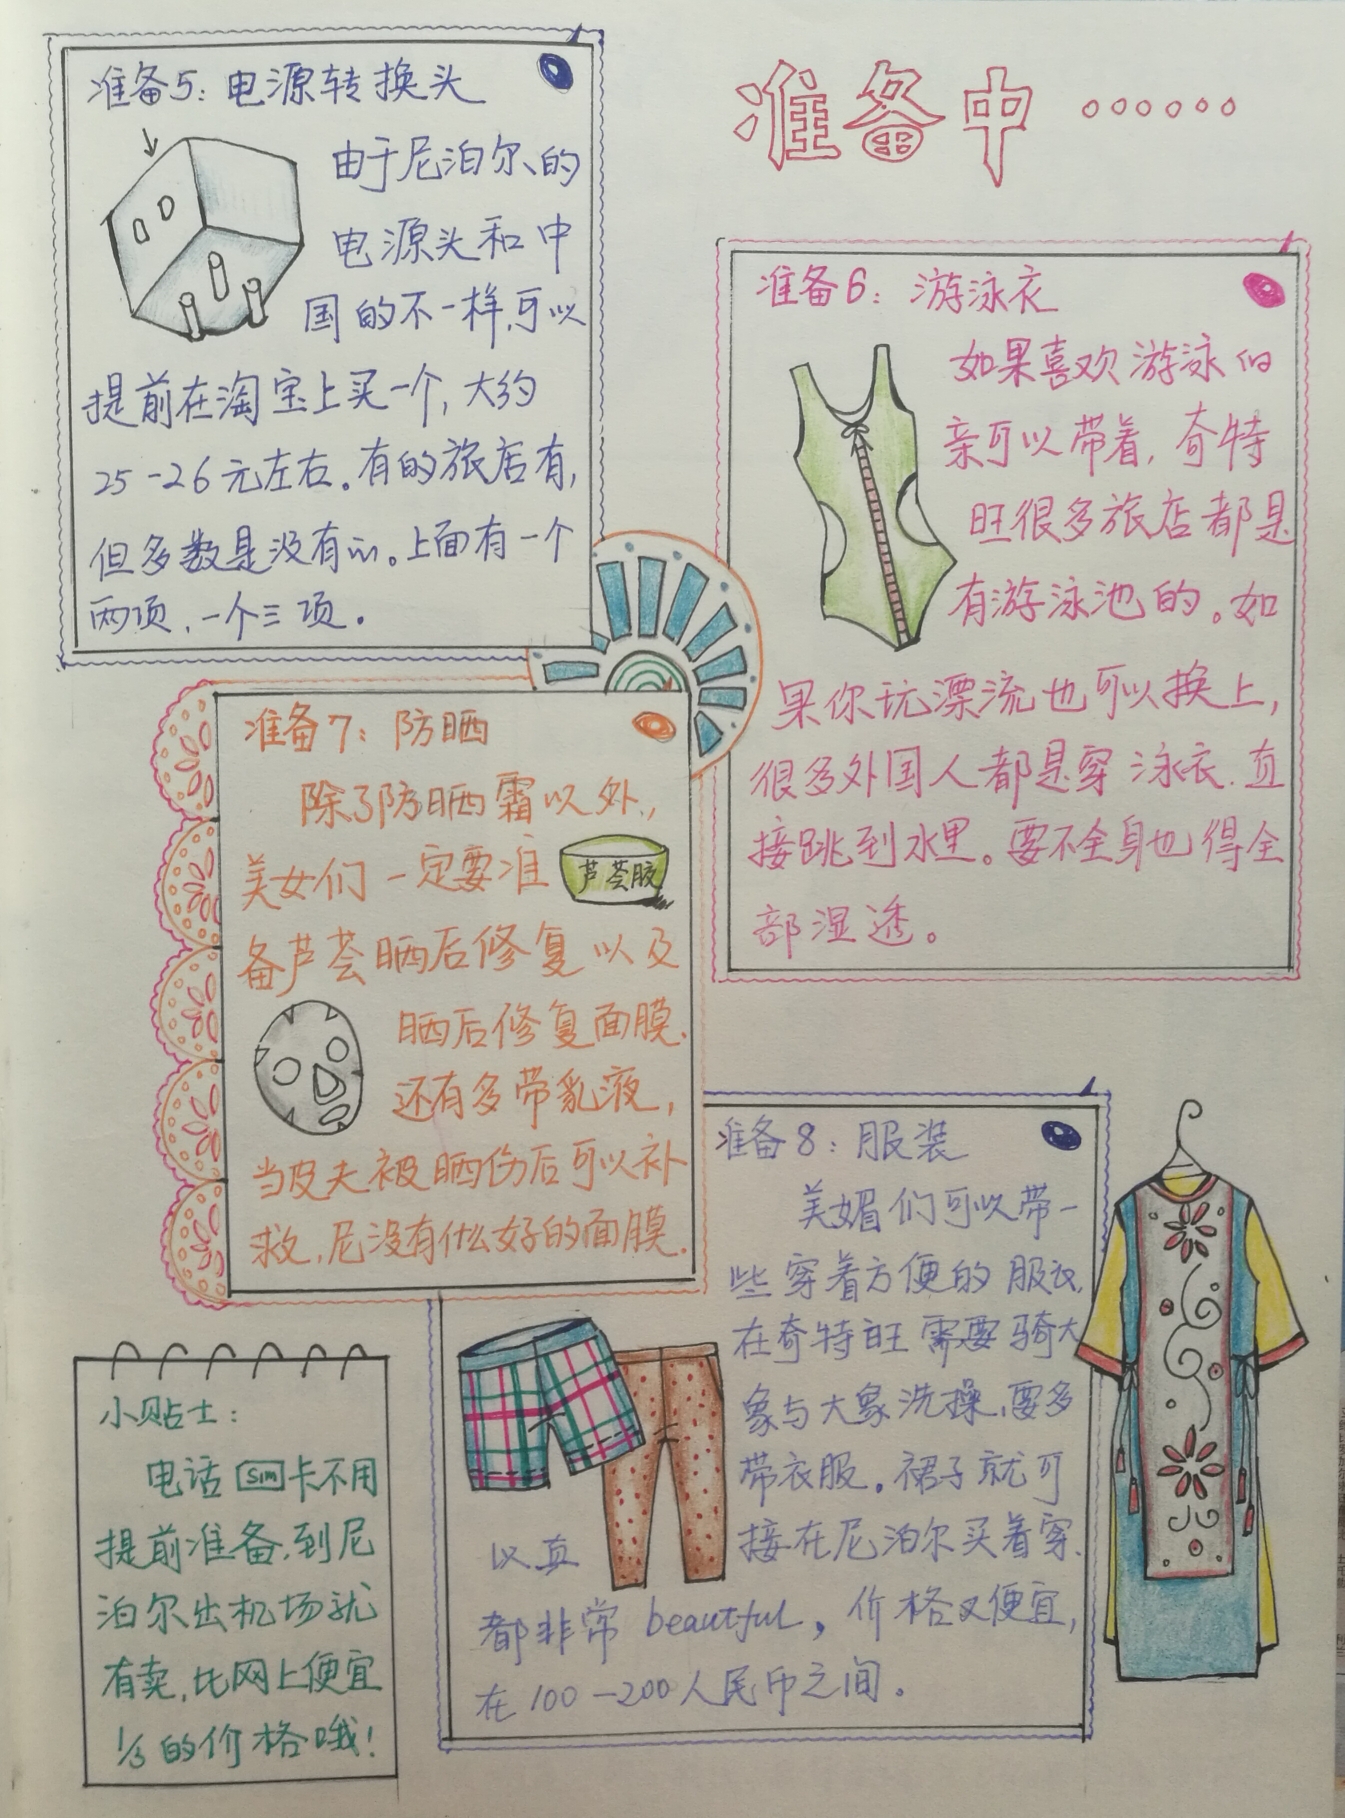 准备中……
准备5：电源转换头
由于尼泊尔的
电源头和中
国的不一样，可以
提前在淘宝上买一个，大约
25-26元左右。有的旅店有，
但多数是没有的。上面有一个
两项，一个三项。
准备6：游泳衣
如果喜欢游泳的
亲可以带着，奇特
旺很多旅店都是
有游泳池的。如
果你玩漂流也可以换上，
很多外国人都是穿泳衣，直
接跳到水里。要不全身也得全
部湿透。
准备7：防晒
除了防晒霜以外，
美女们一定要准
芦荟胶
备芦荟晒后修复以及
晒后修复面膜，
还有多带乳液，
当皮夫被晒伤后可以补
救，尼没有什么好的面膜。
准备8：服装
美媚们可以带一
些穿着方便的服衣，
在奇特旺需要骑大
象与大象洗操，要多
带衣服。裙子就可
以直接在尼泊尔买着穿，
都非常beautful，价格又便宜，
在100-200人民币之间。
小贴士：
电话Sim卡不用
提前准备，到尼
泊尔出机场就
有卖，比网上便宜
1/3的价格哦！